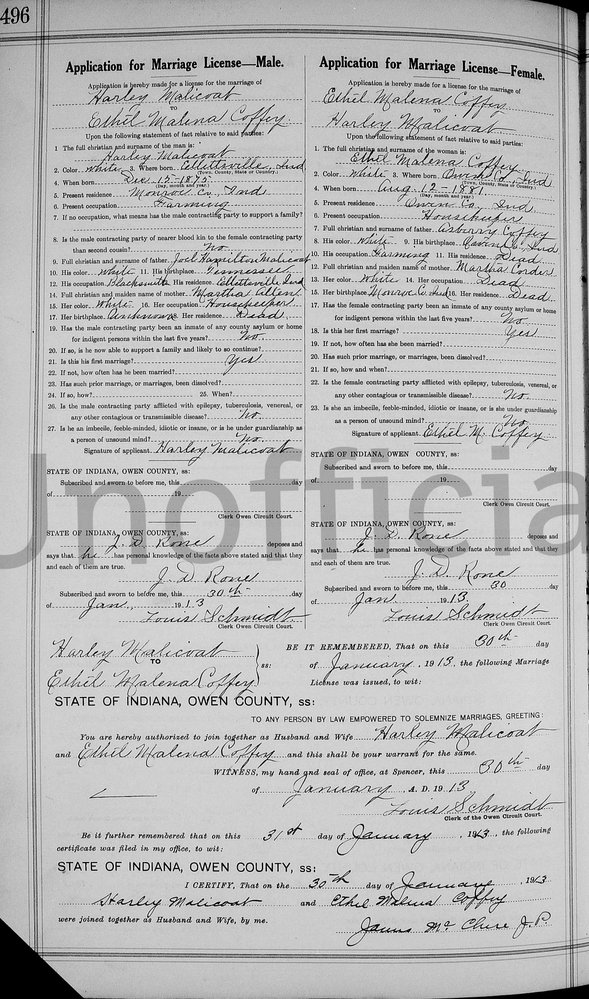 496
Application for Marriage License—Male.
Application is hereby made for a license for the marriage of
Harley Malicoat
TO
Ethel Malena Coffey
Upon the following statement of fact relative to said parties:
1 The full christian and surname of the man is:
Harley Malicoat
2. Color White 3. Where born Ellettsville, Ind
(Town, County, State or Country.)
4. When born Dec 15-1875
(Day, month and year)
5. Present residence Monroe Co, Ind
6. Present occupation Farming
7. If no occupation, what means has the male contracting party to support a family?
8. Is the male contracting party of nearer blood kin to the female contracting party
than second cousin? No
9. Full christian and surname of father Joel Hamilton Malicoat
10. His color White 11. His birthplace Tennessee
12. His occupation Blacksmith His residence Ellettsville Ind
14. Full christian and maiden name of mother Martha
15. Her color White 16. Her occupation Housekeeper
17. Her birthplace Unknown Her residence Dead
19. Has the male contracting party been an inmate of any county asylum or home
for indigent persons within the last five years? No
20. If so, is he now able to support a family and likely to so continue?
21. Is this his first marriage? Yes
22. If not, how often has he been married?
23. Has such prior marriage, or marriages, been dissolved?
24. If so, how? 25. When?
26. Is the male contracting party afflicted with epilepsy, tuberculosis, venereal, or
any other contagious or transmissible disease? No
27. Is he an imbecile, feeble-minded, idiotic or insane, or is he under guardianship as
a person of unsound mind? No
Signature of applicant Harley Malicoat
STATE OF INDIANA, OWEN COUNTY, ss:
Subscribed and sworn to before me, this day
of 19
Clerk Owen Circuit Court.
STATE OF INDIANA, OWEN COUNTY, ss:
J. D. Rone deposes and
says that he has personal knowledge of the facts above stated and that they
and each of them are true.
J. D. Rone
Subscribed and sworn to before me, this 30th day
of Jan., 1913
Louis Schmidt
Clerk Owen Circuit Court.
Application for Marriage License—Female.
Application is hereby made for a license for the marriage of
Ethel Malena Coffey
TO
Harley Malicoat
Upon the following statement of fact relative to said parties:
1. The full christian and surname of the woman is:
Ethel Malena Coffey
2. Color White 3. Where born Owen Co., Ind
(Town, County, State or Country.)
4. When born Aug. 12-1881
(Day, month and year)
5. Present residence Owen Co, Ind
6. Present occupation Housekeeper
7. Full christian and surname of father Asberry Coffey
8. His color White 9. His birthplace Owen Co, Ind
10. His occupation Farming 11. His residence Dead
12. Full christian and maiden name of mother Martha Corder
13. Her color White 14. Her occupation Dead
15. Her birthplace Monroe Co Ind 16. Her residence Dead
17. Has the female contracting party been an inmate of any county asylum or home
for indigent persons within the last five years? No
18. Is this her first marriage? Yes
19. If not, how often has she been married?
20. Has such prior marriage, or marriages, been dissolved?
21. If so, how and when?
22. Is the female contracting party afflicted with epilepsy, tuberculosis, venereal, or
any other contagious or transmissible disease? No
23. Is she an imbecile, feeble-minded, idiotic or insane, or is she under guardianship
as a person of unsound mind? No
Signature of applicant Ethel M. Coffey
STATE OF INDIANA, OWEN COUNTY, ss:
Subscribed and sworn to before me, this day
of 19
Clerk Owen Circuit Court.
STATE OF INDIANA, OWEN COUNTY, ss:
J. D. Rone deposes and
says that he has personal knowledge of the facts above stated and that they
and each of them are true.
J. D. Rone
Subscribed and sworn to before me, this 30 day
of Jan 1913
Louis Schmidt
Clerk Owen Circuit Court.
Unofficia
Harley Malicoat
TO
Ethel Malena Coffey
ss:
BE IT REMEMBERED, That on this 30th day
of January, 1913, the following Marriage
License was issued, to wit:
STATE OF INDIANA, OWEN COUNTY, ss:
TO ANY PERSON BY LAW EMPOWERED TO SOLEMNIZE MARRIAGES, GREETING:
You are hereby authorized to join together as Husband and Wife Harley Malicoat
and Ethel Malena Coffey and this shall be your warrant for the same.
WITNESS, my hand and seal of office, at Spencer, this 30th day
of January, A. D. 1913
Louis Schmidt
Clerk of the Owen Circuit Court.
Be it further remembered that on this 31st day of January, 1913, the following
certificate was filed in my office, to wit:
STATE OF INDIANA, OWEN COUNTY, ss:
I CERTIFY, That on the 30th day of January, 1913
Harley Malicoat and Ethel Malena Coffey
were joined together as Husband and Wife, by me.
James Mc Clure J. P.